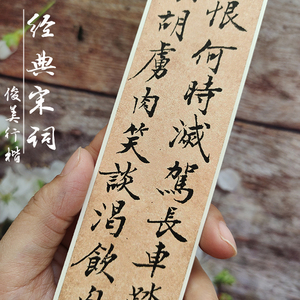 经典宋词
俊美行楷
恨何時滅駕長車踏
胡虜肉笑談渴飲